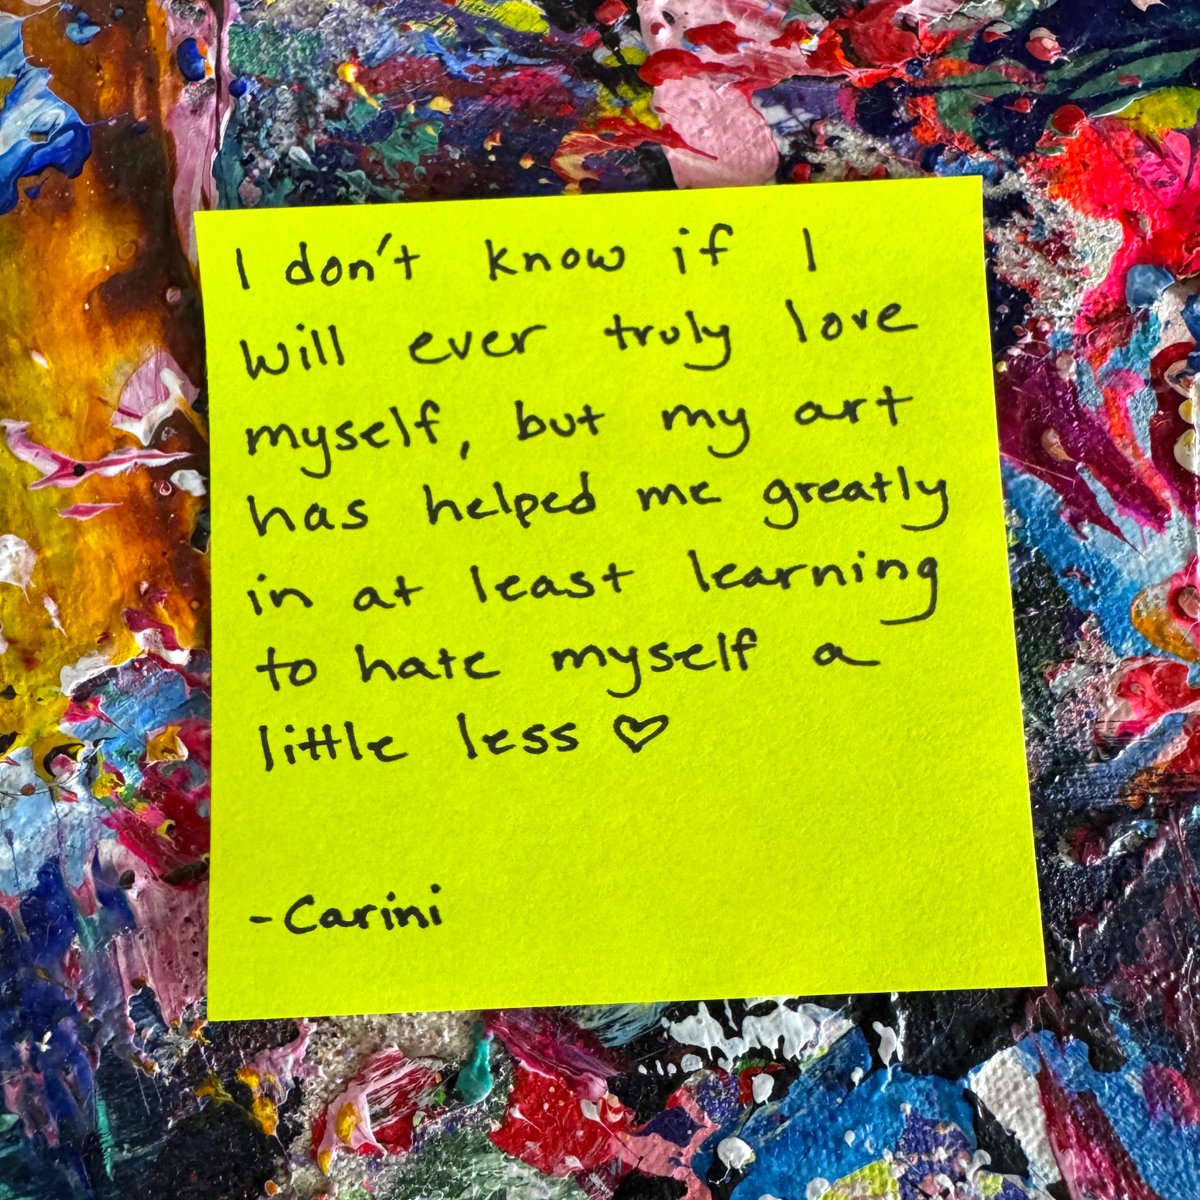 I don't know if I
will ever truly love
myself, but my art
has helped me greatly
in at least learning
to hate myself a
little less ♡
-Carini